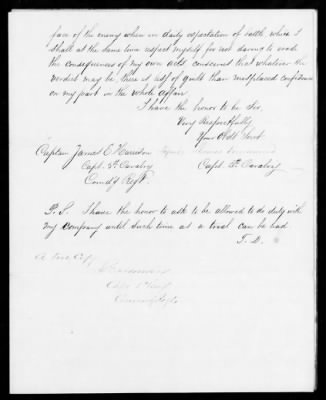 face of the enemy when in daily expectation of battle which I
shall at the same time respect myself for not daring to evade
the consequences of my own acts convinced that whatever the
verdict may be there is less of guilt than misplaced confidence
on my part in the whole affair.
I have the honor to be Sir
Very Respectfully
Your Obdt Servt
Captain James E Harrison
Capt. 5th Cavalry
Capt. 5th Cavalry
Comd'g Reg't.
P.S. I have the honor to ask to be allowed to do duty with
my company until such time as a trial can be had
A true Copy